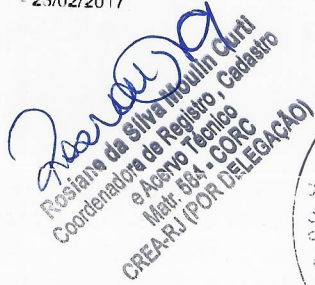 23/02/2017
Rosiane da Silva Moulin Curti
Coordenadora de Registro, Cadastro
e Acervo Técnico
Matr. 581 - CORC
CREA-RJ (POR DELEGAÇÃO)